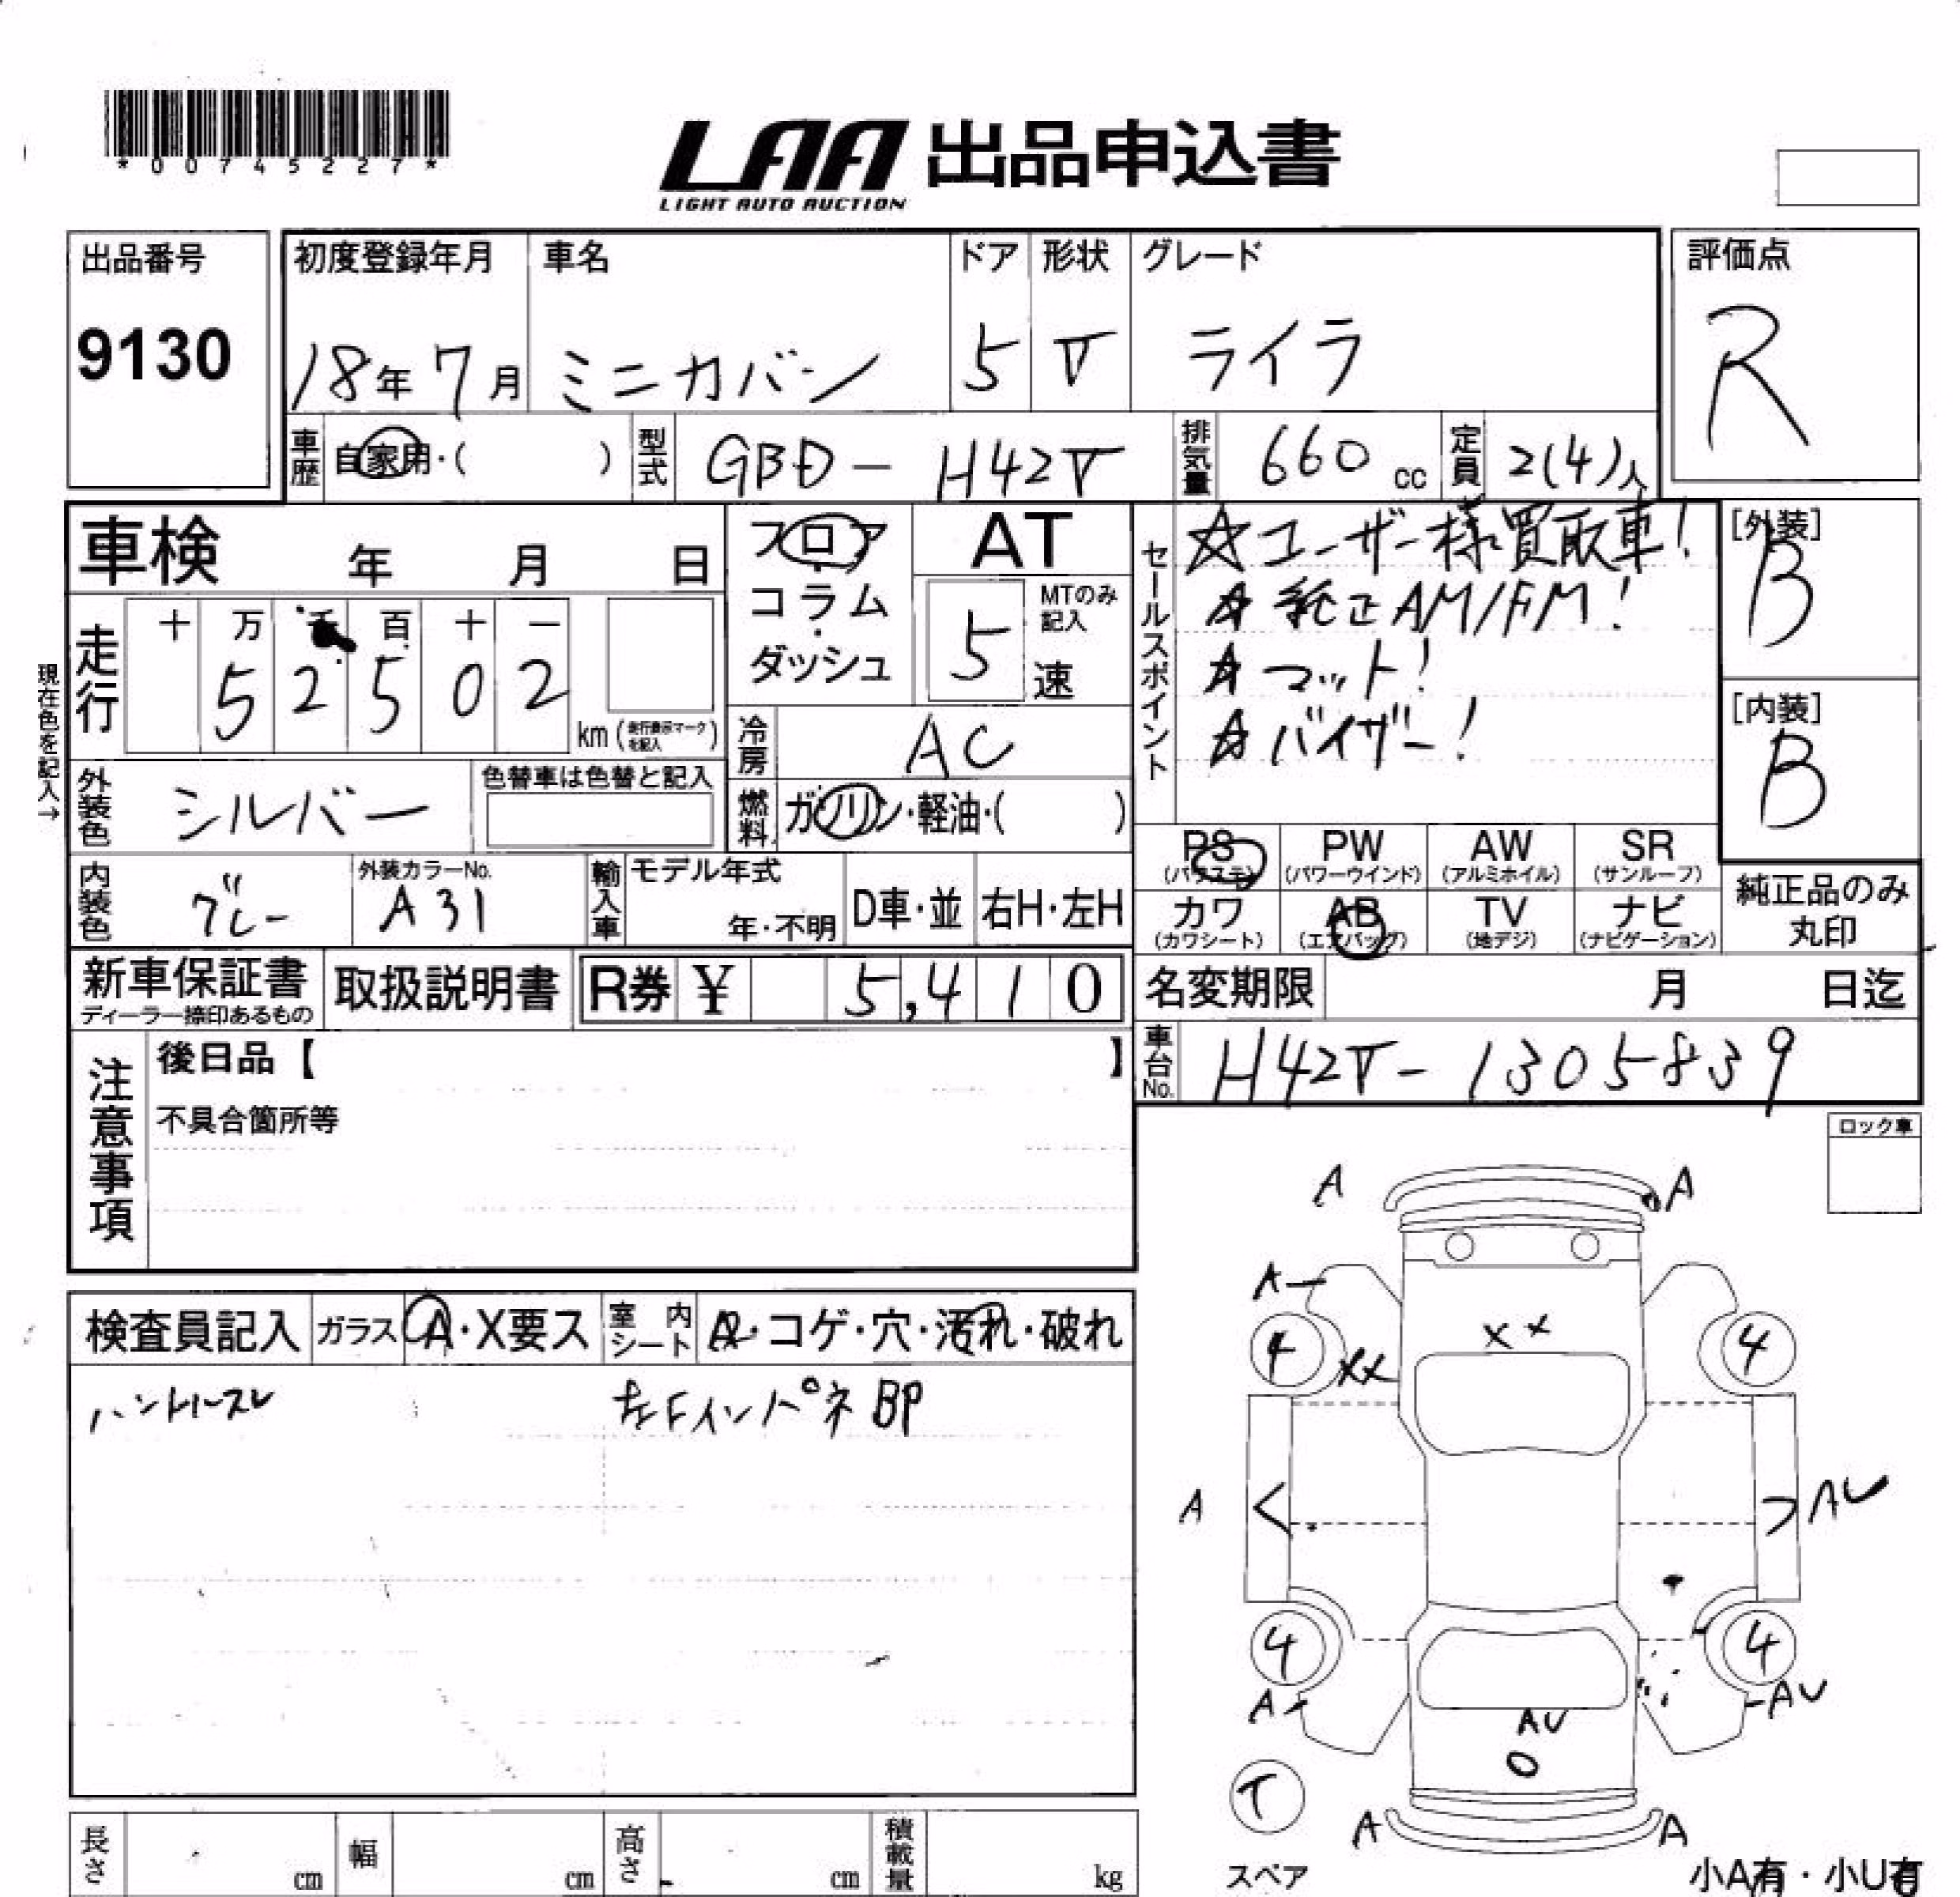 *00745227*
LAA 出品申込書
LIGHT AUTO AUCTION
出品番号
9130
初度登録年月
18年7月
車名
ミニカバン
ドア
5
形状
V
グレード
ライラ
評価点
R
車歴
自家用・( )
型式
GBD-H42V
排気量
660 cc
定員
2(4)人
車検 年 月 日
フロア・コラム・ダッシュ
AT
MTのみ記入
5 速
セールスポイント
☆ユーザー様買取車!
☆純正AM/FM!
☆マット!
☆バイザー!
[外装]
B
[内装]
B
現在色を記入→
走行
十 万 千 百 十 一
5 2 5 0 2
km(走行表示マークを記入)
冷房
AC
燃料
ガソリン・軽油・( )
外装色
シルバー
色替車は色替と記入
内装色
グレー
外装カラーNo.
A31
輸入車
モデル年式
年・不明
D車・並
右H・左H
PS
(パワステ)
PW
(パワーウインド)
AW
(アルミホイル)
SR
(サンルーフ)
カワ
(カワシート)
AB
(エアバッグ)
TV
(地デジ)
ナビ
(ナビゲーション)
純正品のみ
丸印
新車保証書
ディーラー捺印あるもの
取扱説明書
R券 ¥ 5,410
名変期限 月 日迄
車台No.
H42V-1305839
注意事項
後日品【 】
不具合箇所等
ロック車
検査員記入
ガラス
A・X要ス
室内シート
・コゲ・穴・汚れ・破れ
ハンドルスレ
左FインパネBP
A
A
A
4
XX
X X
4
A
AU
4
4
A
AU
AU
T
A
A
スペア
小A有・小U有
長さ cm
幅 cm
高さ cm
積載量 kg